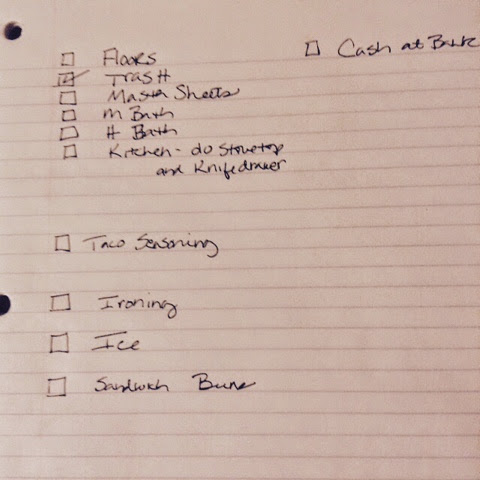 Floors
Trash
Master Sheets
M Bath
H Bath
Kitchen - do stovetop
and Knifedrawer
Cash at Bank
Taco Seasoning
Ironing
Ice
Sandwich Buns